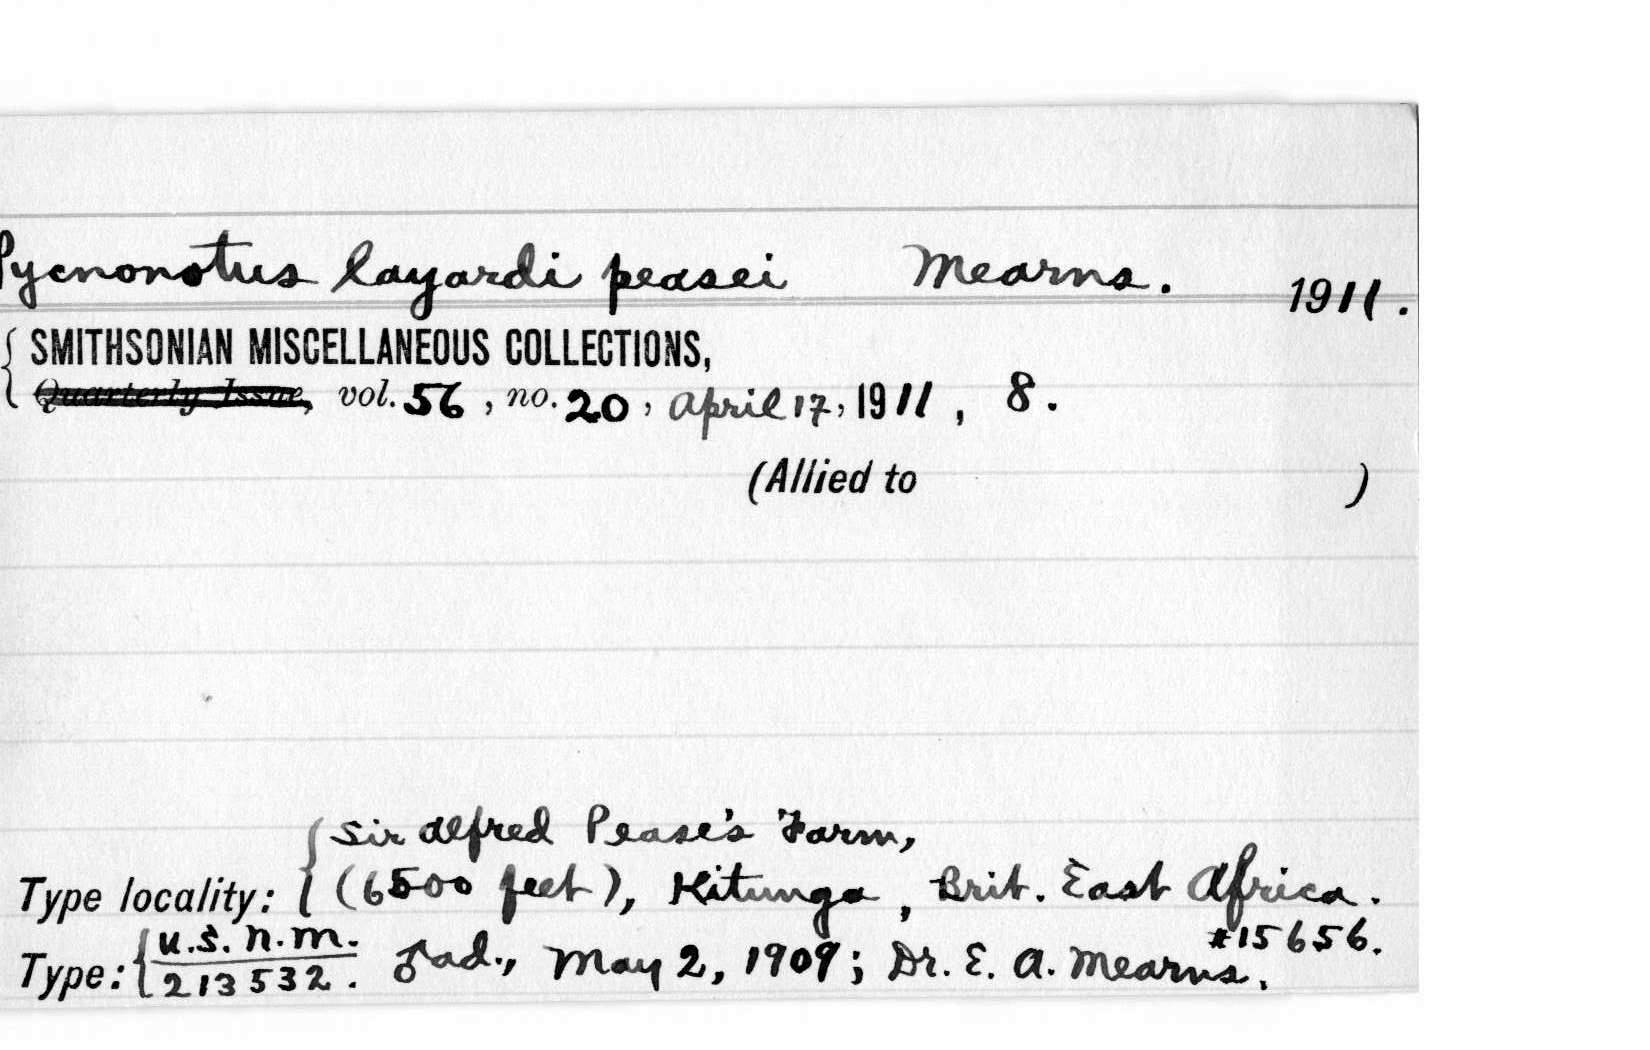 Pycnonotus layardi peasei Mearns. 1911.
SMITHSONIAN MISCELLANEOUS COLLECTIONS,
Quarterly Issue, vol. 56, no. 20, April 17, 1911, 8.
(Allied to )
Sir Alfred Pease's Farm,
Type locality: (6500 feet), Kitunga, Brit. East Africa.
#15656.
U.S.N.M.
Type: 213532. ♂ad., May 2, 1909; Dr. E. A. Mearns.